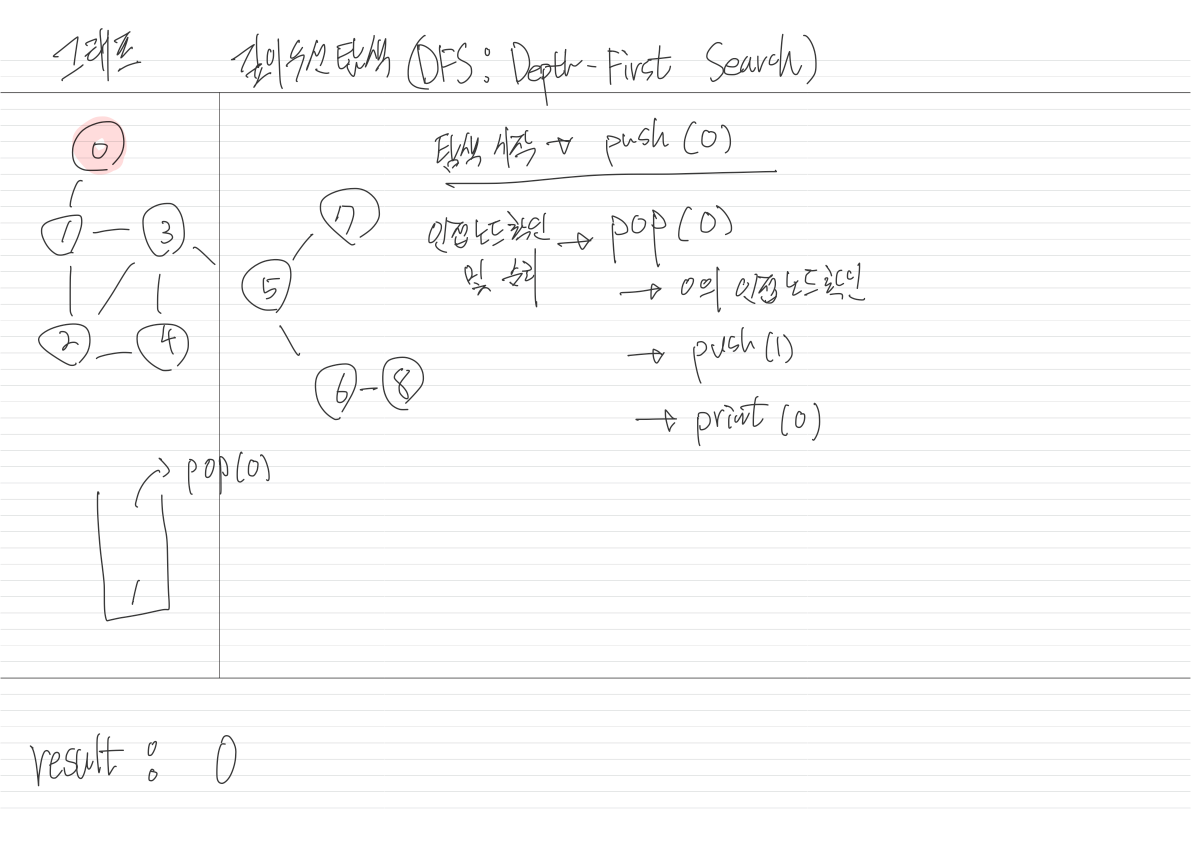 그래프 깊이우선탐색 (DFS: Depth-First Search)
0
1 3
2 4
5
7
6 8
탐색 시작 → push (0)
인접노드확인 및 → pop (0)
→ 0의 인접노드확인
→ push (1)
→ print (0)
pop(0)
1
result : 0